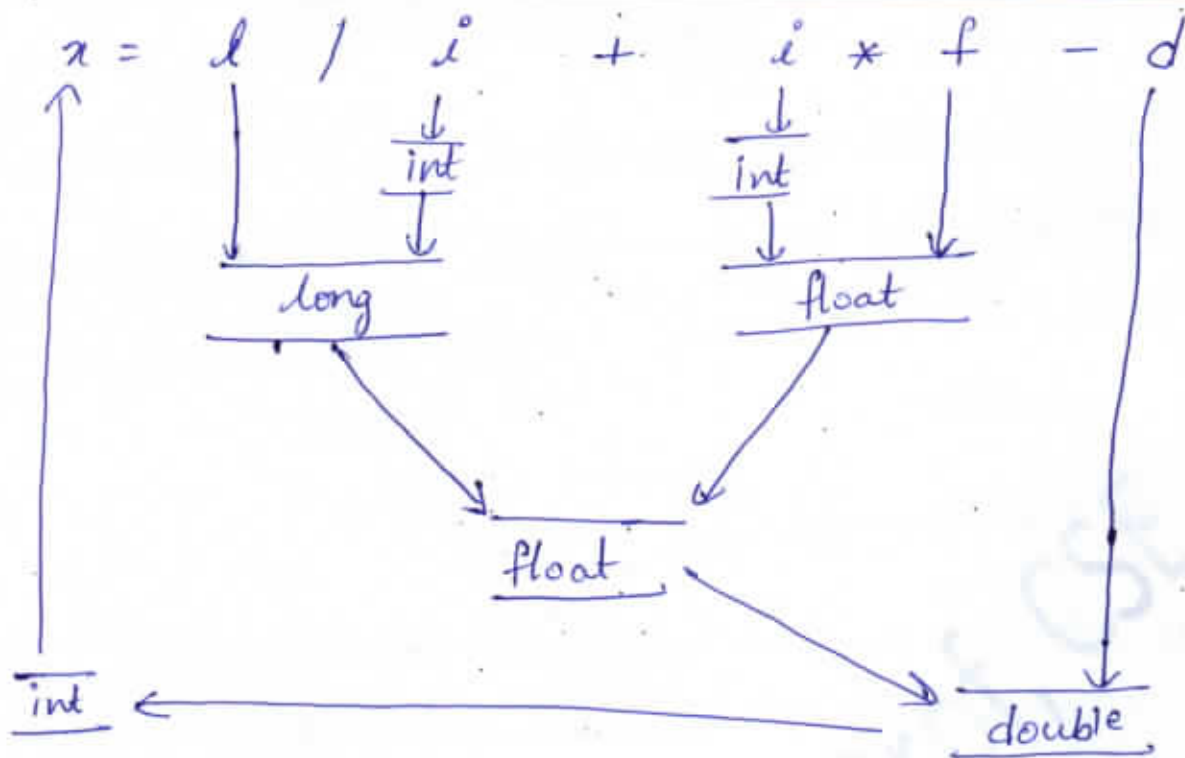 x = l / i + i * f - d
int int
long float
float
int double